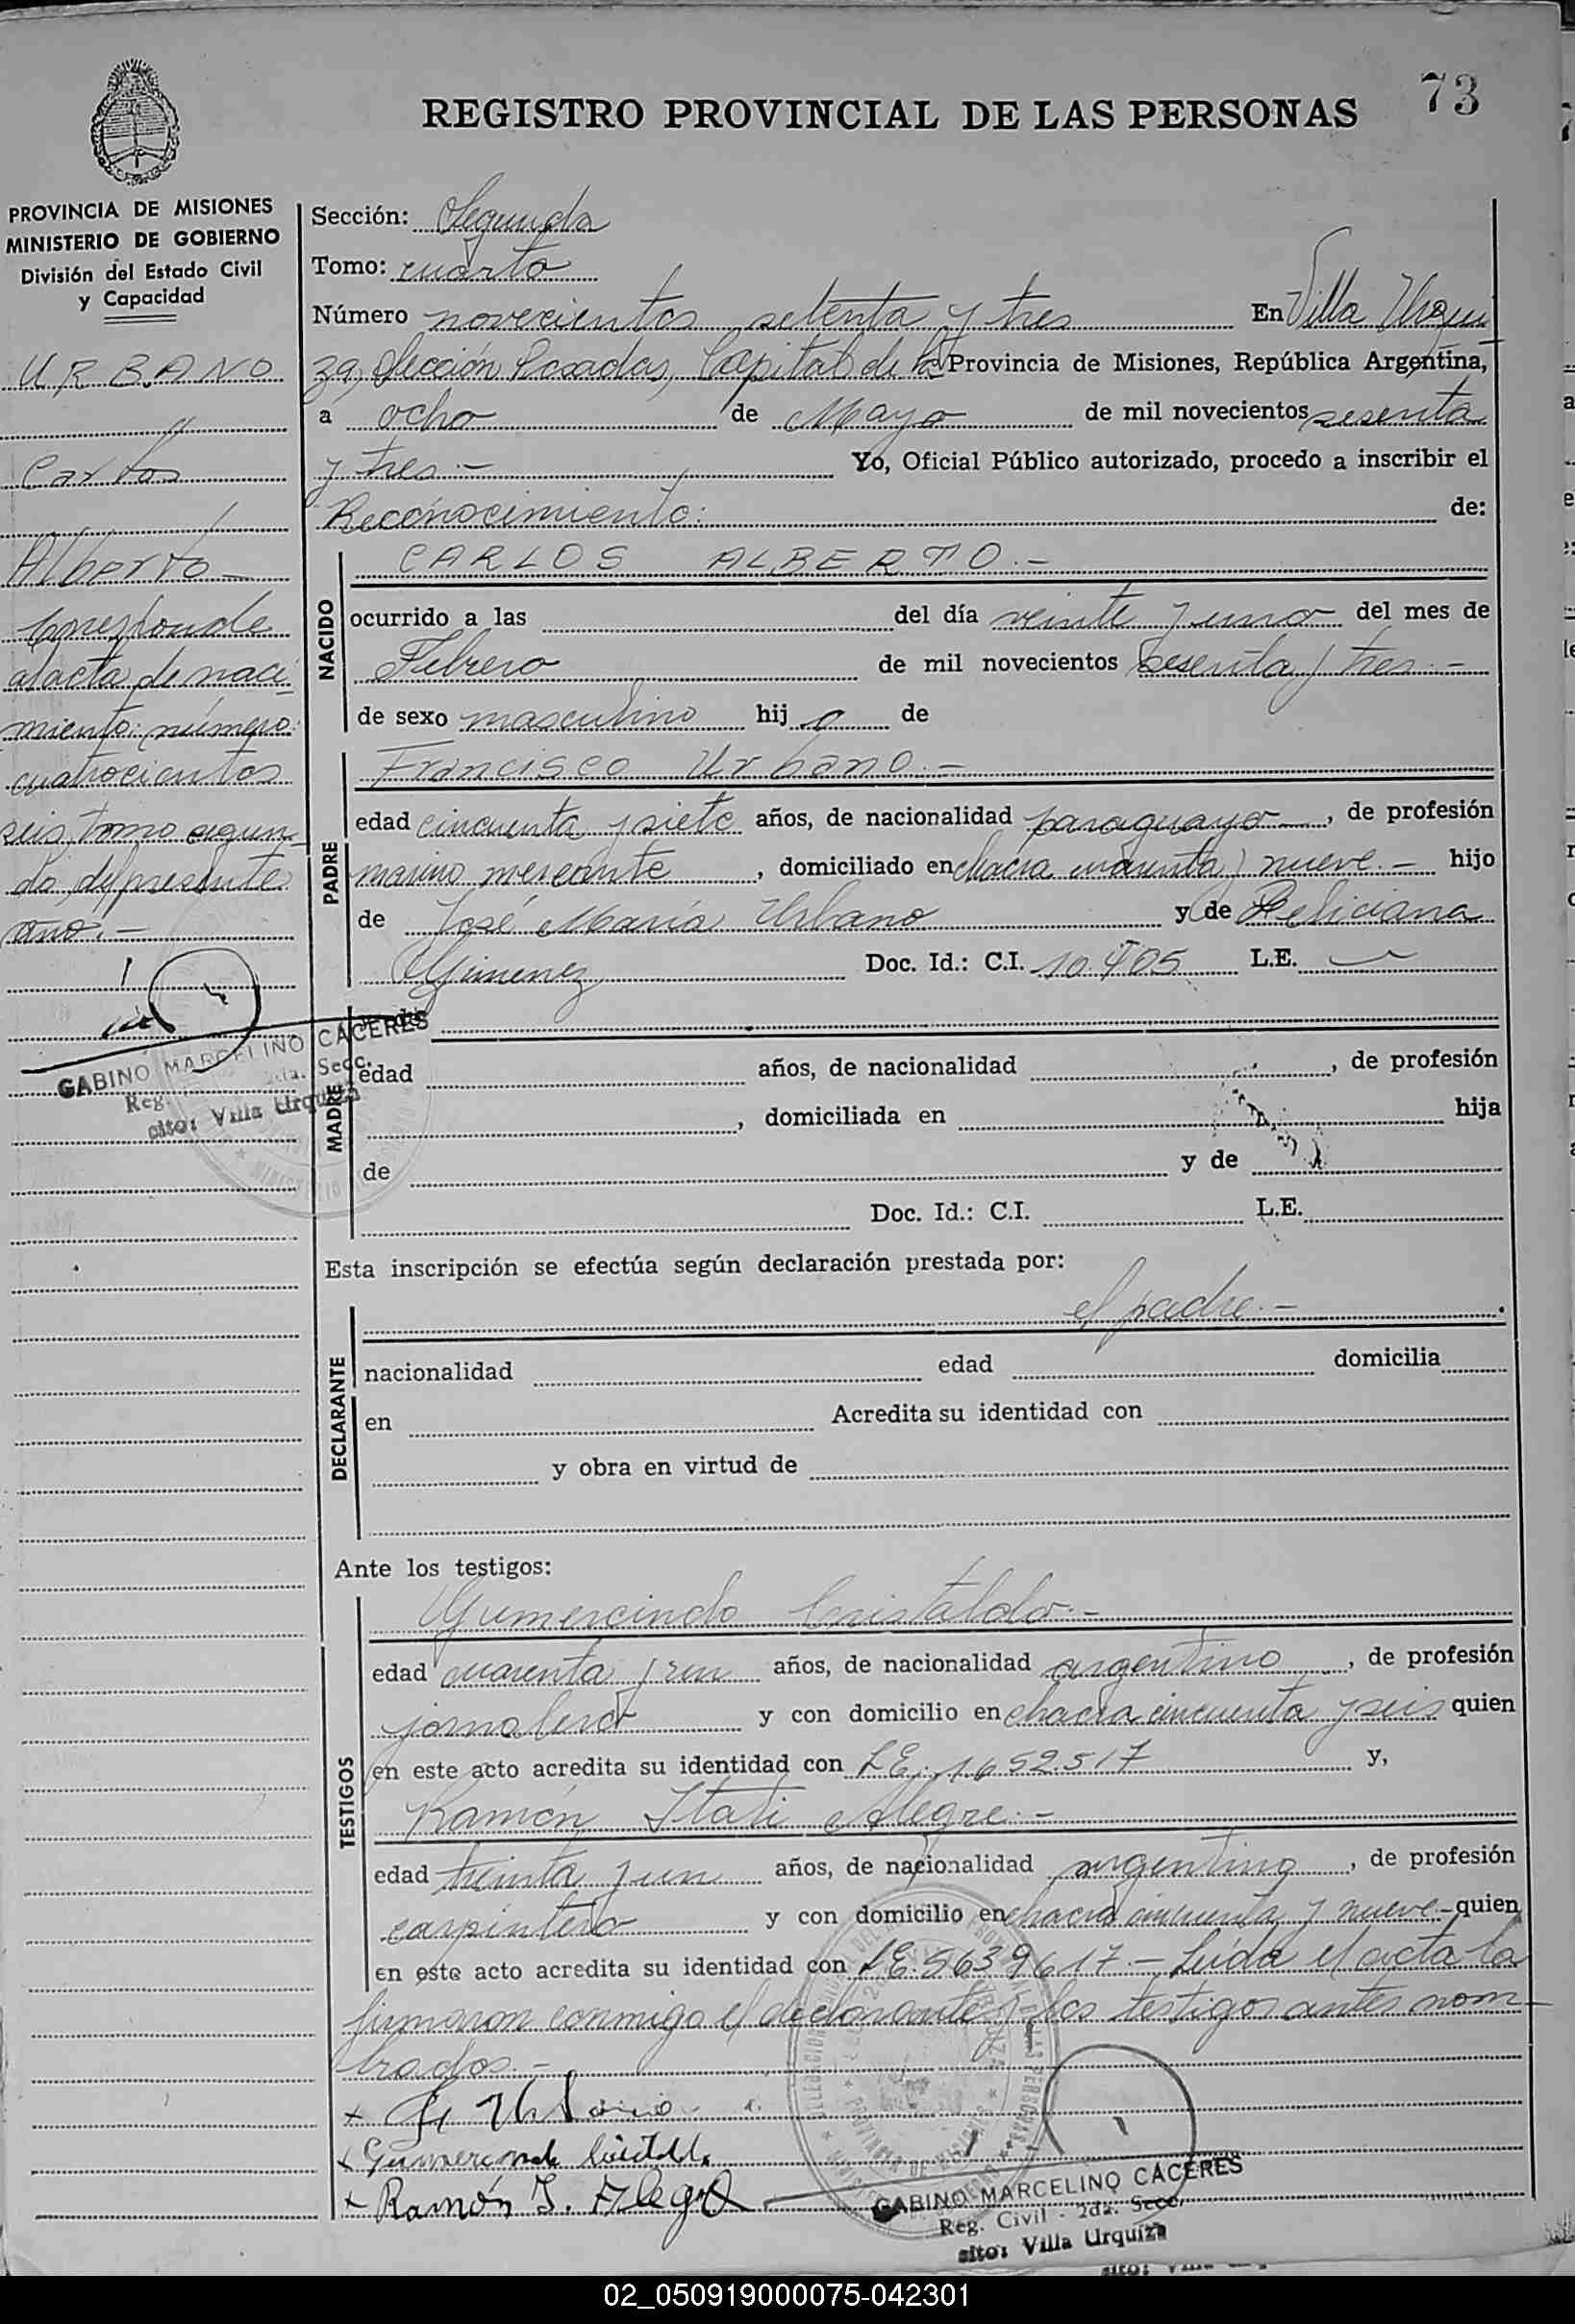 REGISTRO PROVINCIAL DE LAS PERSONAS
73
PROVINCIA DE MISIONES
MINISTERIO DE GOBIERNO
División del Estado Civil
y Capacidad
URBANO
Carlos
Alberto
Corresponde
al acta de naci-
miento: número:
cuatrocientos
seis, tomo segun-
do, del presente
año.-
GABINO MARCELINO CACERES
Reg. 2da. Secc.
sito: Villa Urquiza
Sección: Segunda
Tomo: cuarto
Número novecientos setenta y tres En Villa Urqui
za, Sección Posadas, Capital de la Provincia de Misiones, República Argentina,
a ocho de Mayo de mil novecientos sesenta
y tres.- Yo, Oficial Público autorizado, procedo a inscribir el
Reconocimiento: de:
NACIDO
CARLOS ALBERTO.-
ocurrido a las del día veinte y uno del mes de
Febrero de mil novecientos sesenta y tres.-
de sexo masculino hijo de
PADRE
Francisco Urbano.-
edad cincuenta y siete años, de nacionalidad paraguayo, de profesión
marino mercante, domiciliado en chacra cuarenta y nueve.- hijo
de José María Urbano y de Feliciana
Gimenez Doc. Id.: C.I. L.E.
MADRE
edad años, de nacionalidad , de profesión
, domiciliada en hija
de y de
Doc. Id.: C.I. L.E.
Esta inscripción se efectúa según declaración prestada por:
el padre.-
DECLARANTE
nacionalidad edad domicilia
en Acredita su identidad con
y obra en virtud de
Ante los testigos:
TESTIGOS
Gumercindo Cristaldo.-
edad cuarenta y un años, de nacionalidad argentino, de profesión
jornalero y con domicilio en chacra cincuenta y seis quien
en este acto acredita su identidad con L.E. 1652.517 y,
Ramón Itati Alegre.-
edad treinta y un años, de nacionalidad argentino, de profesión
carpintero y con domicilio en chacra cincuenta y nueve- quien
en este acto acredita su identidad con L.E. 5639617.- Leída el acta la
firmaron conmigo el declarante y los testigos antes nom-
brados.-
Urbano
Gumercindo Cristaldo
Ramón I. Alegre
GABINO MARCELINO CACERES
Reg. Civil - 2da. Secc.
sito: Villa Urquiza
02_050919000075-042301